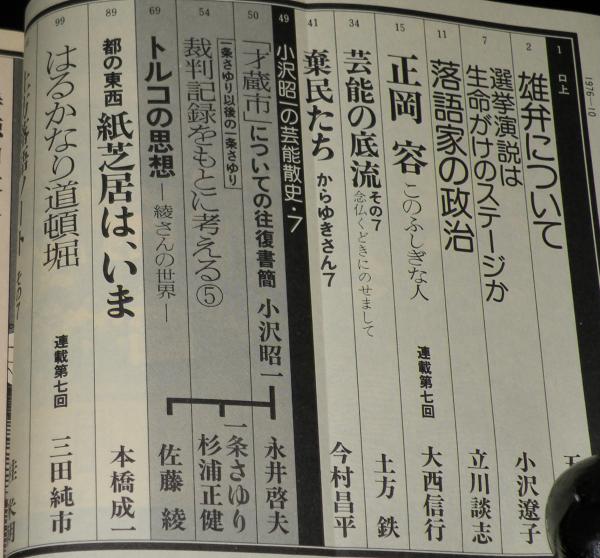 1976—10
1 口上
2 雄弁について 小沢遼子
7 選挙演説は
生命がけのステージか 立川談志
11 落語家の政治
15 正岡容 このふしぎな人 連載第七回 大西信行
34 芸能の底流 その7
念仏くどきにのせまして 土方 鉄
41 棄民たち からゆきさん7 今村昌平
49 小沢昭一の芸能散史・7
50 「才蔵市」についての往復書簡 小沢昭一 永井啓夫
54 一条さゆり以後の一条さゆり
裁判記録をもとに考える⑤ 一条さゆり
杉浦正健
69 トルコの思想 ―綾さんの世界― 佐藤 綾
89 都の東西 紙芝居は、いま 本橋成一
99 はるかなり道頓堀 連載第七回 三田純市
その7